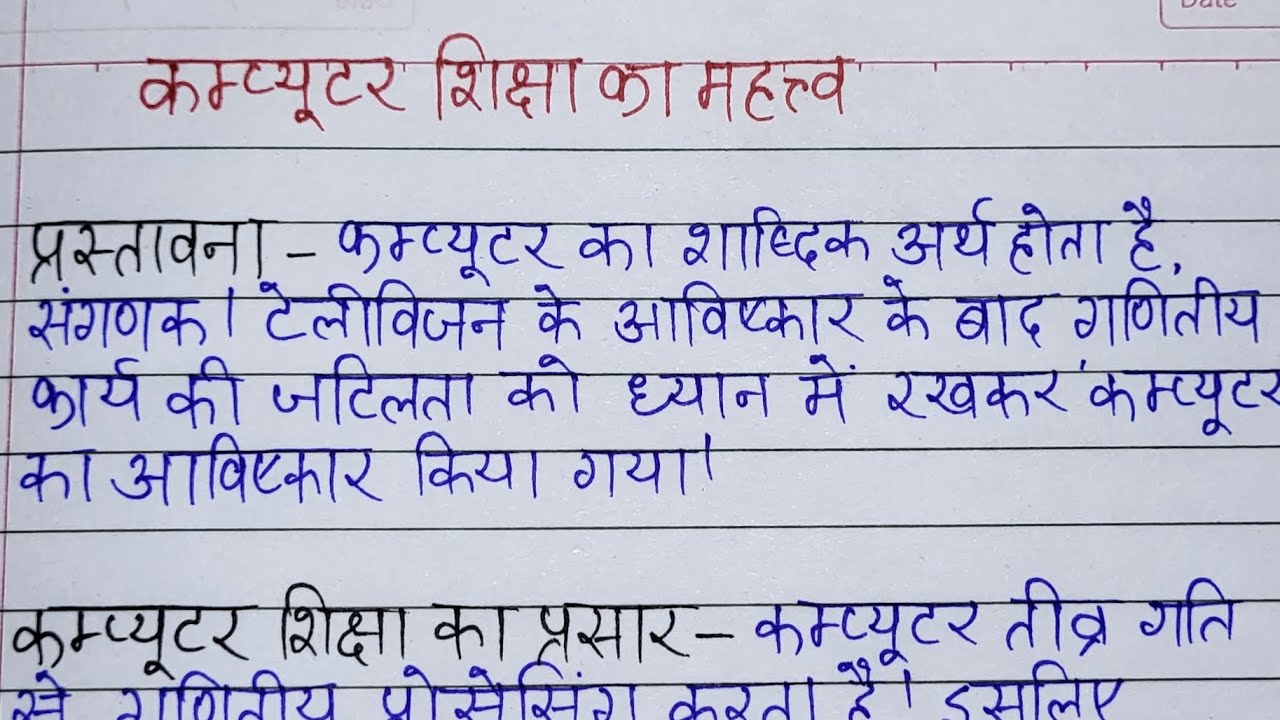 Date
कम्प्यूटर शिक्षा का महत्त्व
प्रस्तावना - कम्प्यूटर का शाब्दिक अर्थ होता है,
संगणक। टेलीविजन के आविष्कार के बाद गणितीय
कार्य की जटिलता को ध्यान में रखकर कम्प्यूटर
का आविष्कार किया गया।
कम्प्यूटर शिक्षा का प्रसार - कम्प्यूटर तीव्र गति
से गणितीय प्रोसेसिंग करता है। इसलिए